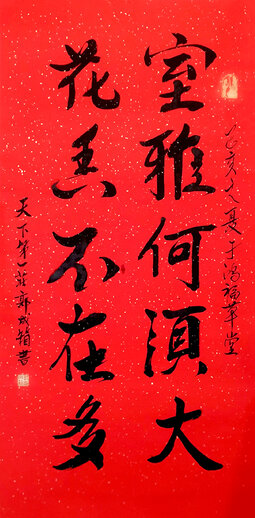 己亥之夏于鴻福草堂
室雅何須大
花香不在多
天下第一莊郭成書